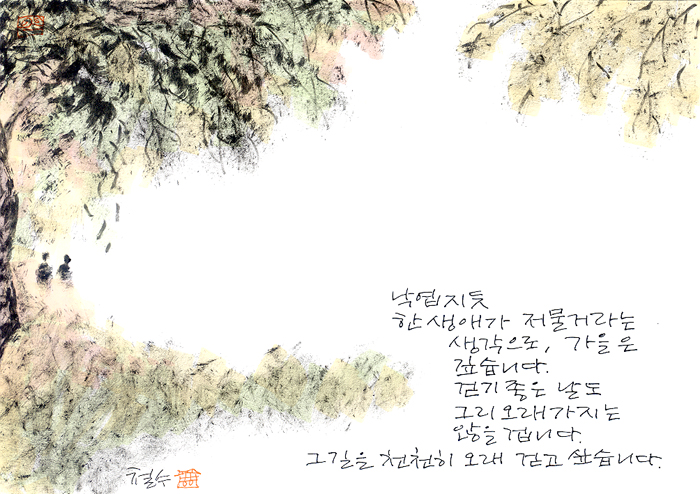 낙엽지듯
한 생애가 저물거라는
생각으로, 가을은
깊습니다.
걷기 좋은 날도
그리 오래가지는
않을 겁니다.
그 길을 천천히 오래 걷고 싶습니다.
철수